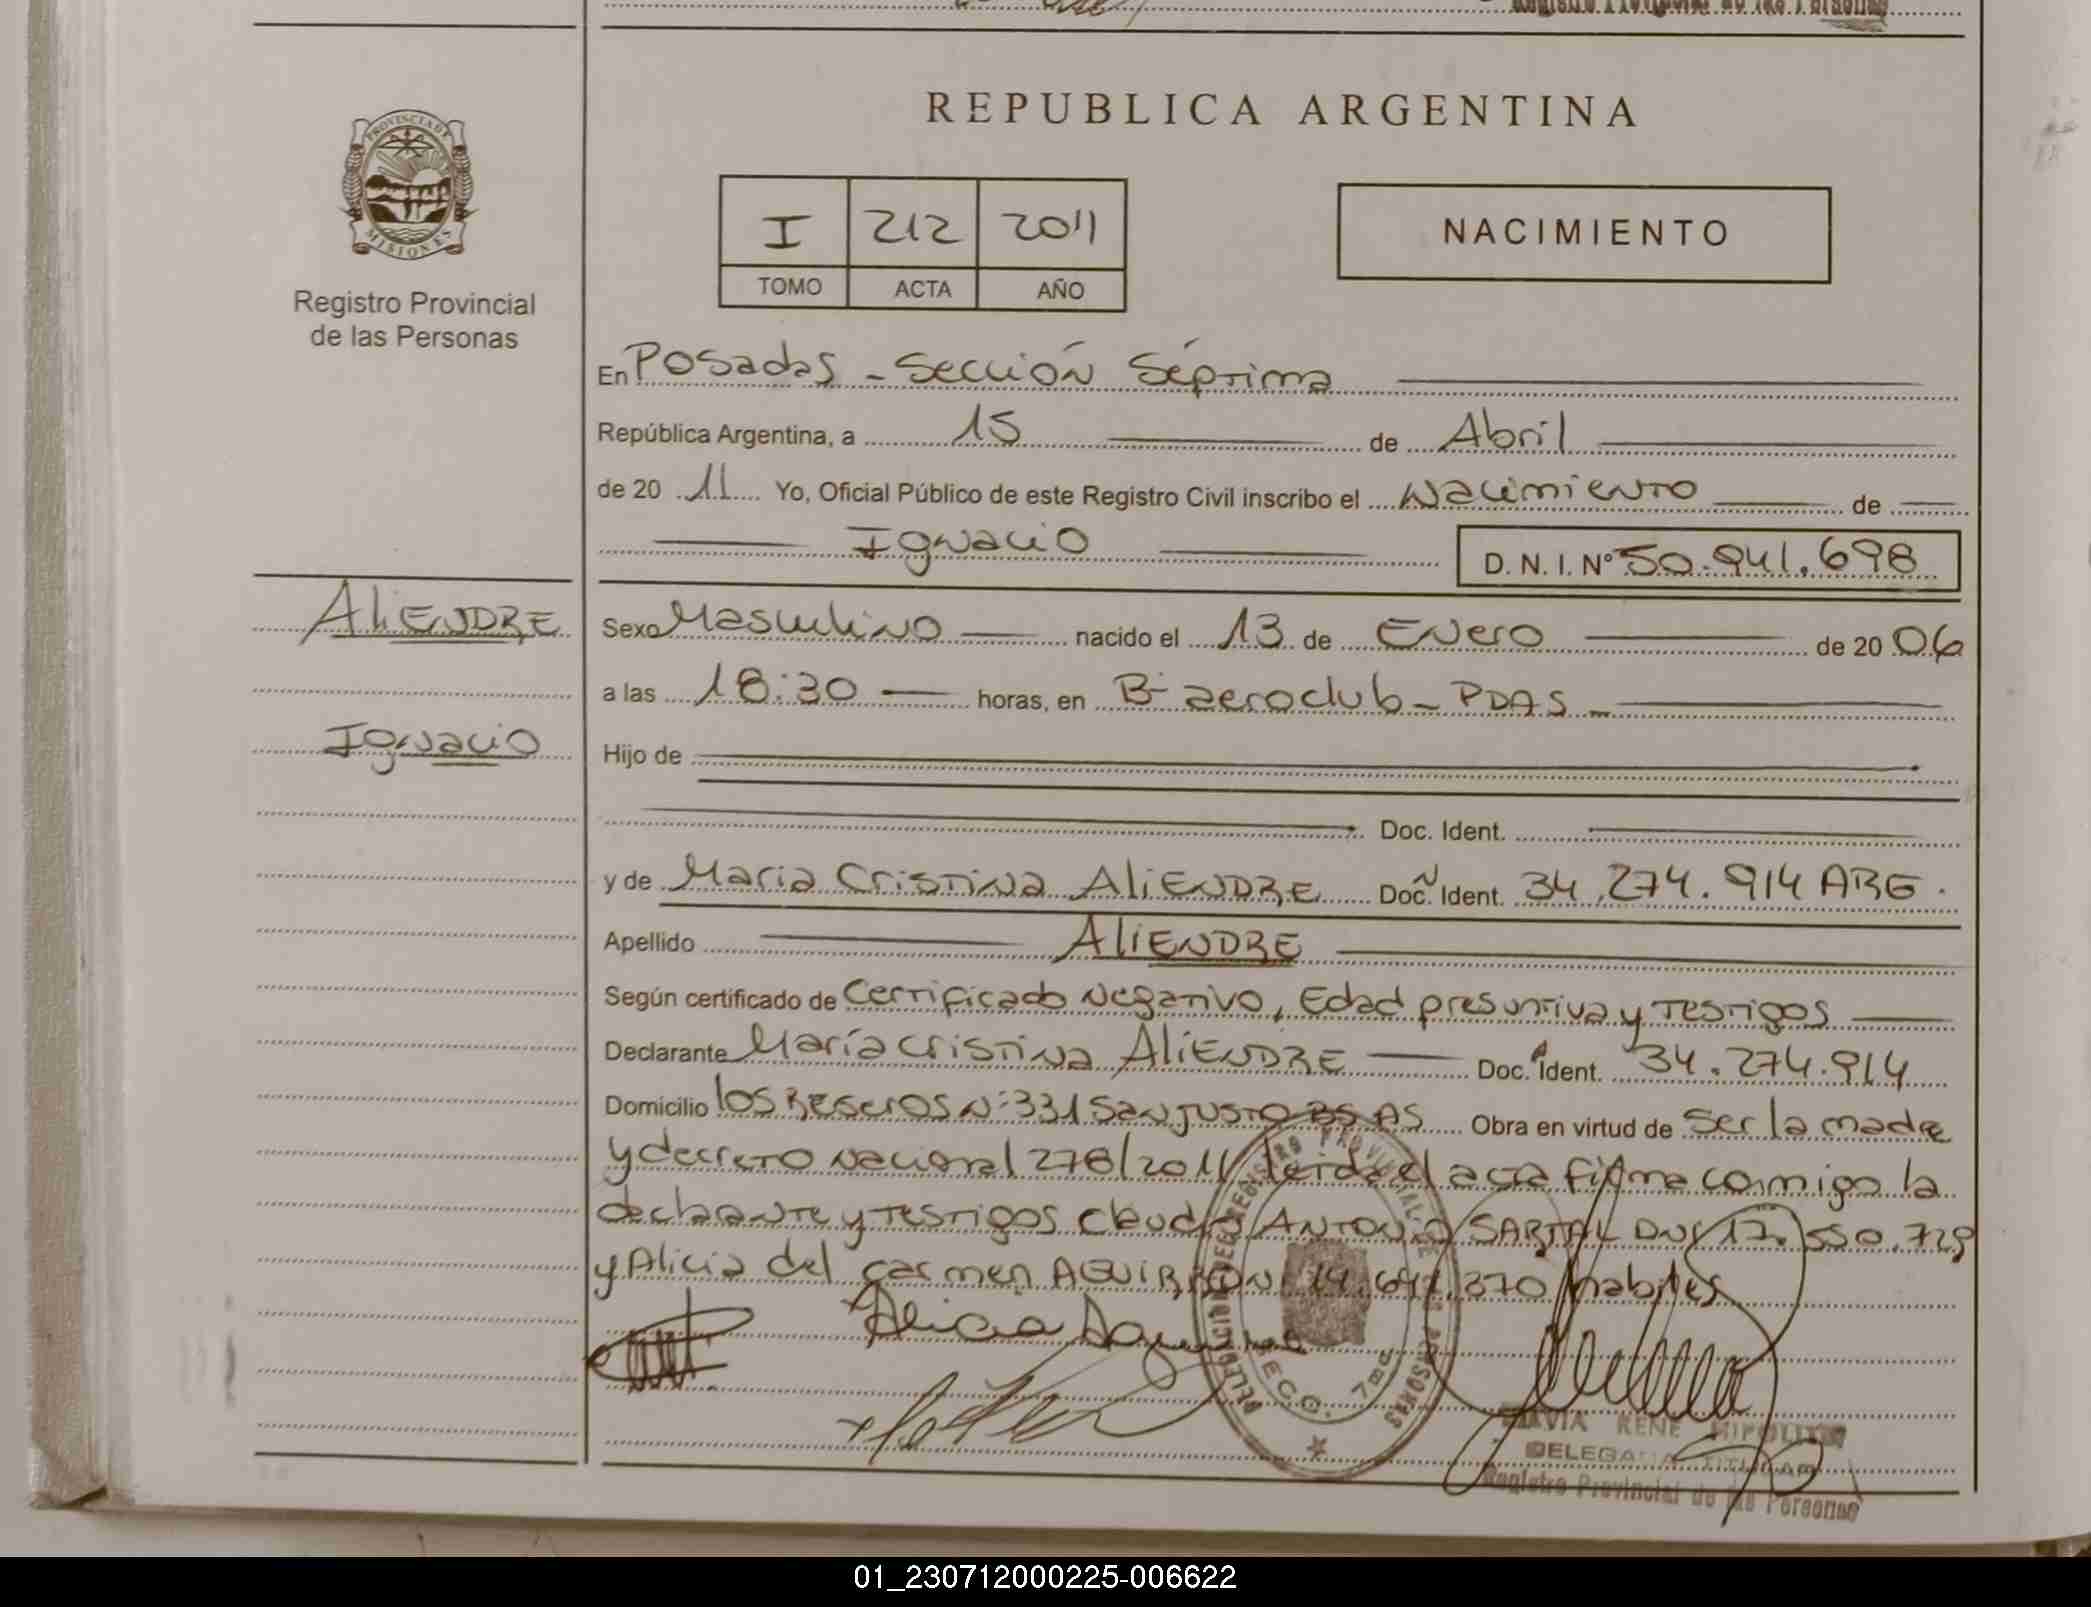 Registro Provincial de las Personas
REPUBLICA ARGENTINA
PROVINCIA DE
MISIONES
Registro Provincial
de las Personas
I 212 2011
TOMO ACTA AÑO
NACIMIENTO
En Posadas - Sección Séptima
República Argentina, a 15 de Abril
de 20 11 Yo, Oficial Público de este Registro Civil inscribo el Nacimiento de
Ignacio D. N. I. Nº 50.941.698
ALIENDRE
Ignacio
Sexo Masculino nacido el 13 de Enero de 20 06
a las 18:30 horas, en Bº aeroclub - PDAS -
Hijo de
Doc. Ident.
y de Maria Cristina ALIENDRE Doc. Ident. 34.274.914 ARG.
Apellido ALIENDRE
Según certificado de Certificado Negativo, Edad presuntiva y Testigos
Declarante María Cristina ALIENDRE Doc. Ident. 34.274.914
Domicilio los Reseros Nº 331 San Justo BS AS Obra en virtud de ser la madre
y decreto Nacional 278/2011 leida el acta firma conmigo la
declarante y Testigos Claudio ANTONIO SARTAL DNI 17.550.729
y Alicia del carmen AGUIRRE DNI 14.641.370 habiles
Alicia Aguirre
DELEGACION DEL REGISTRO PROVINCIAL DE LAS PERSONAS
SECC. 7ma
RENE HIPOLITO
DELEGADA TITULAR
Registro Provincial de las Personas
01_230712000225-006622